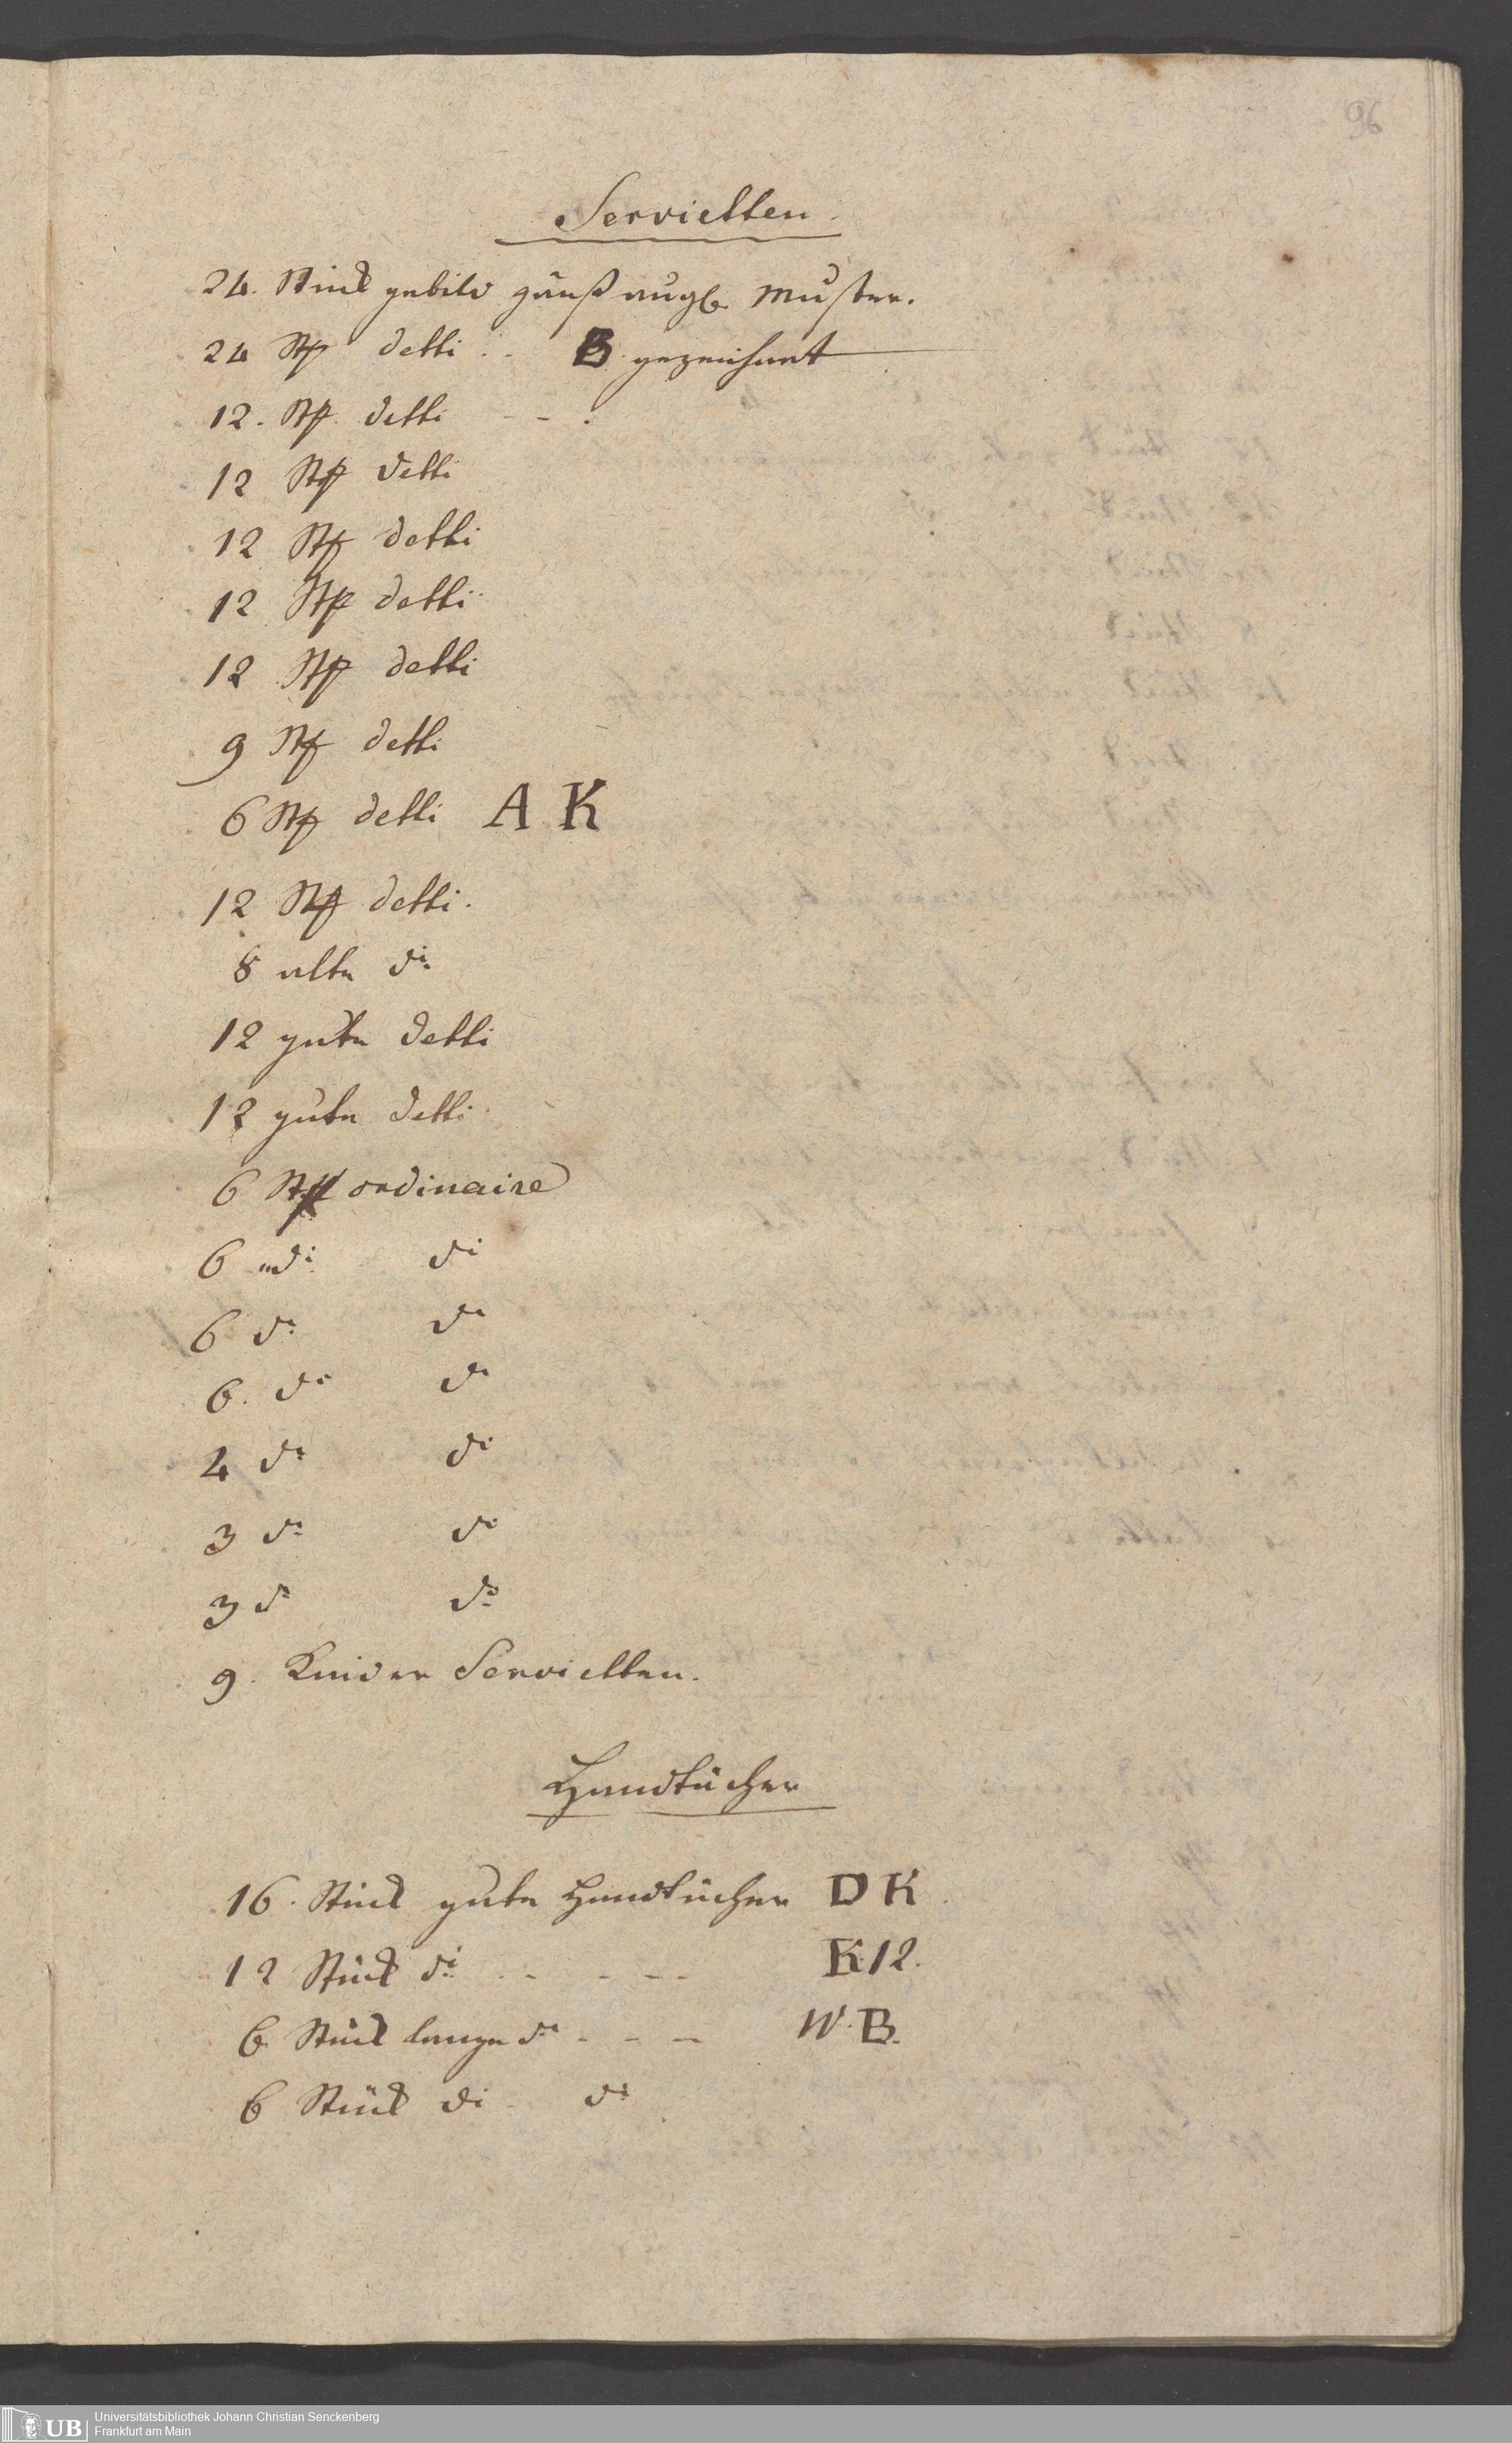 96
Servietten.
24. Stück gebild gänß augh. Muster.
24 Stk detti . . B. gezeichnet
12. Stk. detti - - .
12 Stk detti
12 Stk detti
12 Stk detti
12 Stk detti
9 Stk detti
6 Stk detti A K
12 Stk detti.
8 alte di.
12 gute detti
12 gute detti
6 Stk ordinaire
6 di di
6 di di
6. di di
4 di di
3 di di
3 di do
9. Kinder Servietten.
Handtücher
16. Stück gute Handtücher D K.
12 Stück di - - - - - K. 12.
6 Stück lange di - - - W. B.
6 Stück di - di
Universitätsbibliothek Johann Christian Senckenberg
Frankfurt am Main
UB